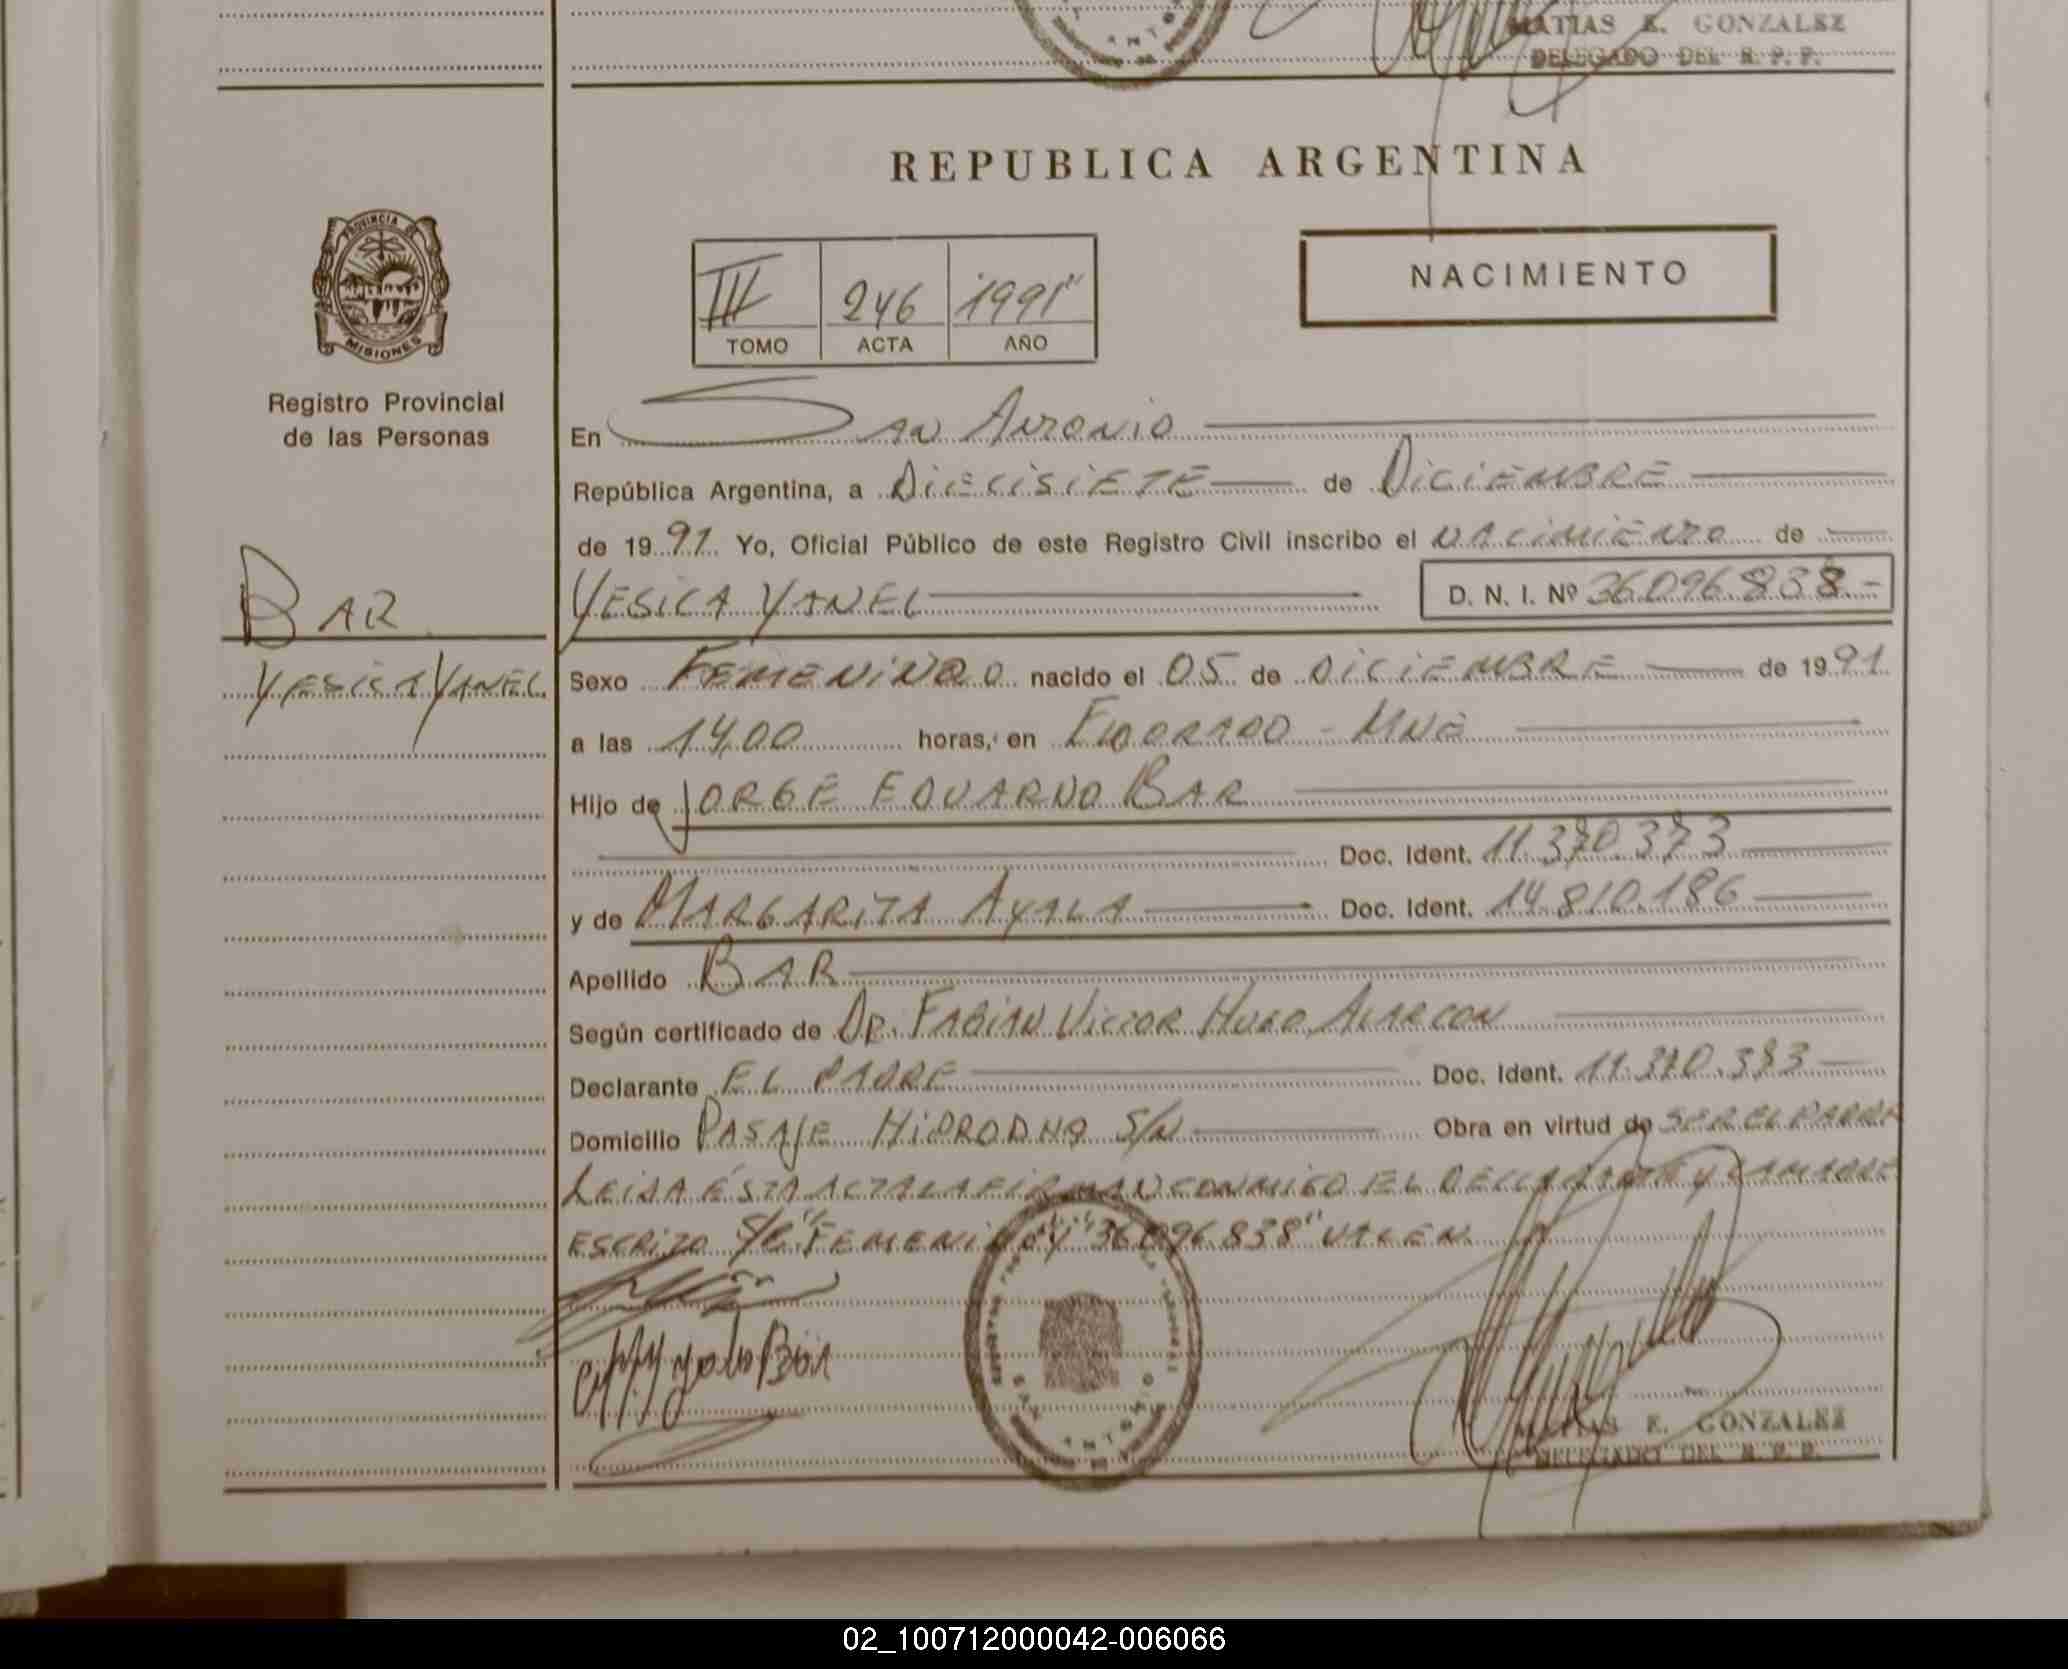 MATIAS E. GONZALEZ
DELEGADO DEL R. P. P.
REPUBLICA ARGENTINA
PROVINCIA DE
MISIONES
Registro Provincial
de las Personas
III 246 1991"
TOMO ACTA AÑO
NACIMIENTO
En San Antonio
República Argentina, a Diecisiete de Diciembre
de 1991 Yo, Oficial Público de este Registro Civil inscribo el nacimiento de
BAR
YESICA YANEL
YESICA YANEL D. N. I. Nº 36.096.838-
Sexo FEMENINO nacido el 05 de DICIEMBRE de 1991
a las 14,00 horas, en ELDORADO - MNES
Hijo de JORGE EDUARDO BAR
Doc. Ident. 11.370.373
y de MARGARITA AYALA Doc. Ident. 14.810.186
Apellido BAR
Según certificado de DR. FABIAN VICTOR HUGO ALARCON
Declarante EL PADRE Doc. Ident. 11.370.373
Domicilio PASAJE HIDRODNA S/N Obra en virtud de SER EL PADRE
LEIDA ESTA ACTA LA FIRMAN CONMIGO EL DECLARANTE Y LA MADRE
ESCRITO S/R "FEMENINO Y "36096.838" VALEN.
SAN ANTONIO
MATIAS E. GONZALEZ
DELEGADO DEL R. P. P.
02_100712000042-006066